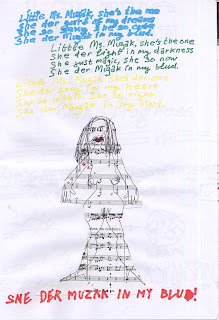 Little Ms. Muzak, she's the one
She der part of my dreams
She so
She der Muzak in my blud.
Little Ms. Muzak, she's the one
She der light in my darkness
She just magic, she so now
She der Muzak in my blud.
Little Ms Muzak She's der one
She der song in my heart
She so with it She so right
She der Muzak in my blud.
SHE DER MUZAK IN MY BLUD!